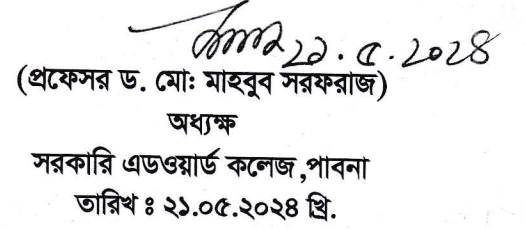 ২১.৫.২০২৪
(প্রফেসর ড. মোঃ মাহবুব সরফরাজ)
অধ্যক্ষ
সরকারি এডওয়ার্ড কলেজ,পাবনা
তারিখ ঃ ২১.০৫.২০২৪ খ্রি.